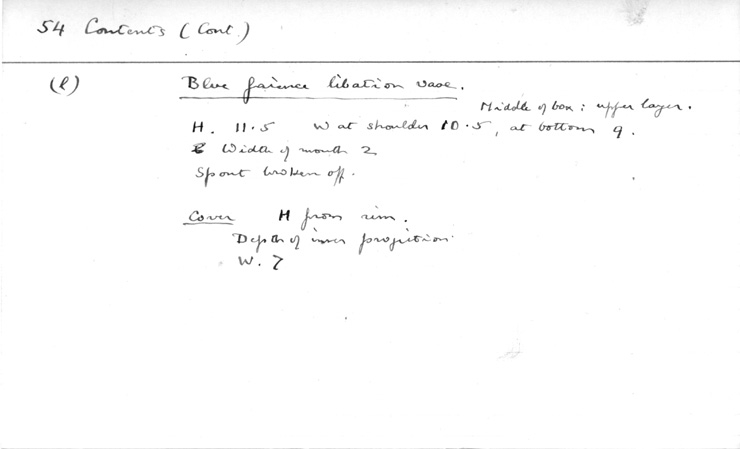 54 Contents (Cont.)
(l) Blue faience libation vase.
Middle of box : upper layer.
H. 11.5 W at shoulder 10.5, at bottom 9.
Width of mouth 2
Spout broken off.
Cover H from rim.
Depth of inner projection
W. 7